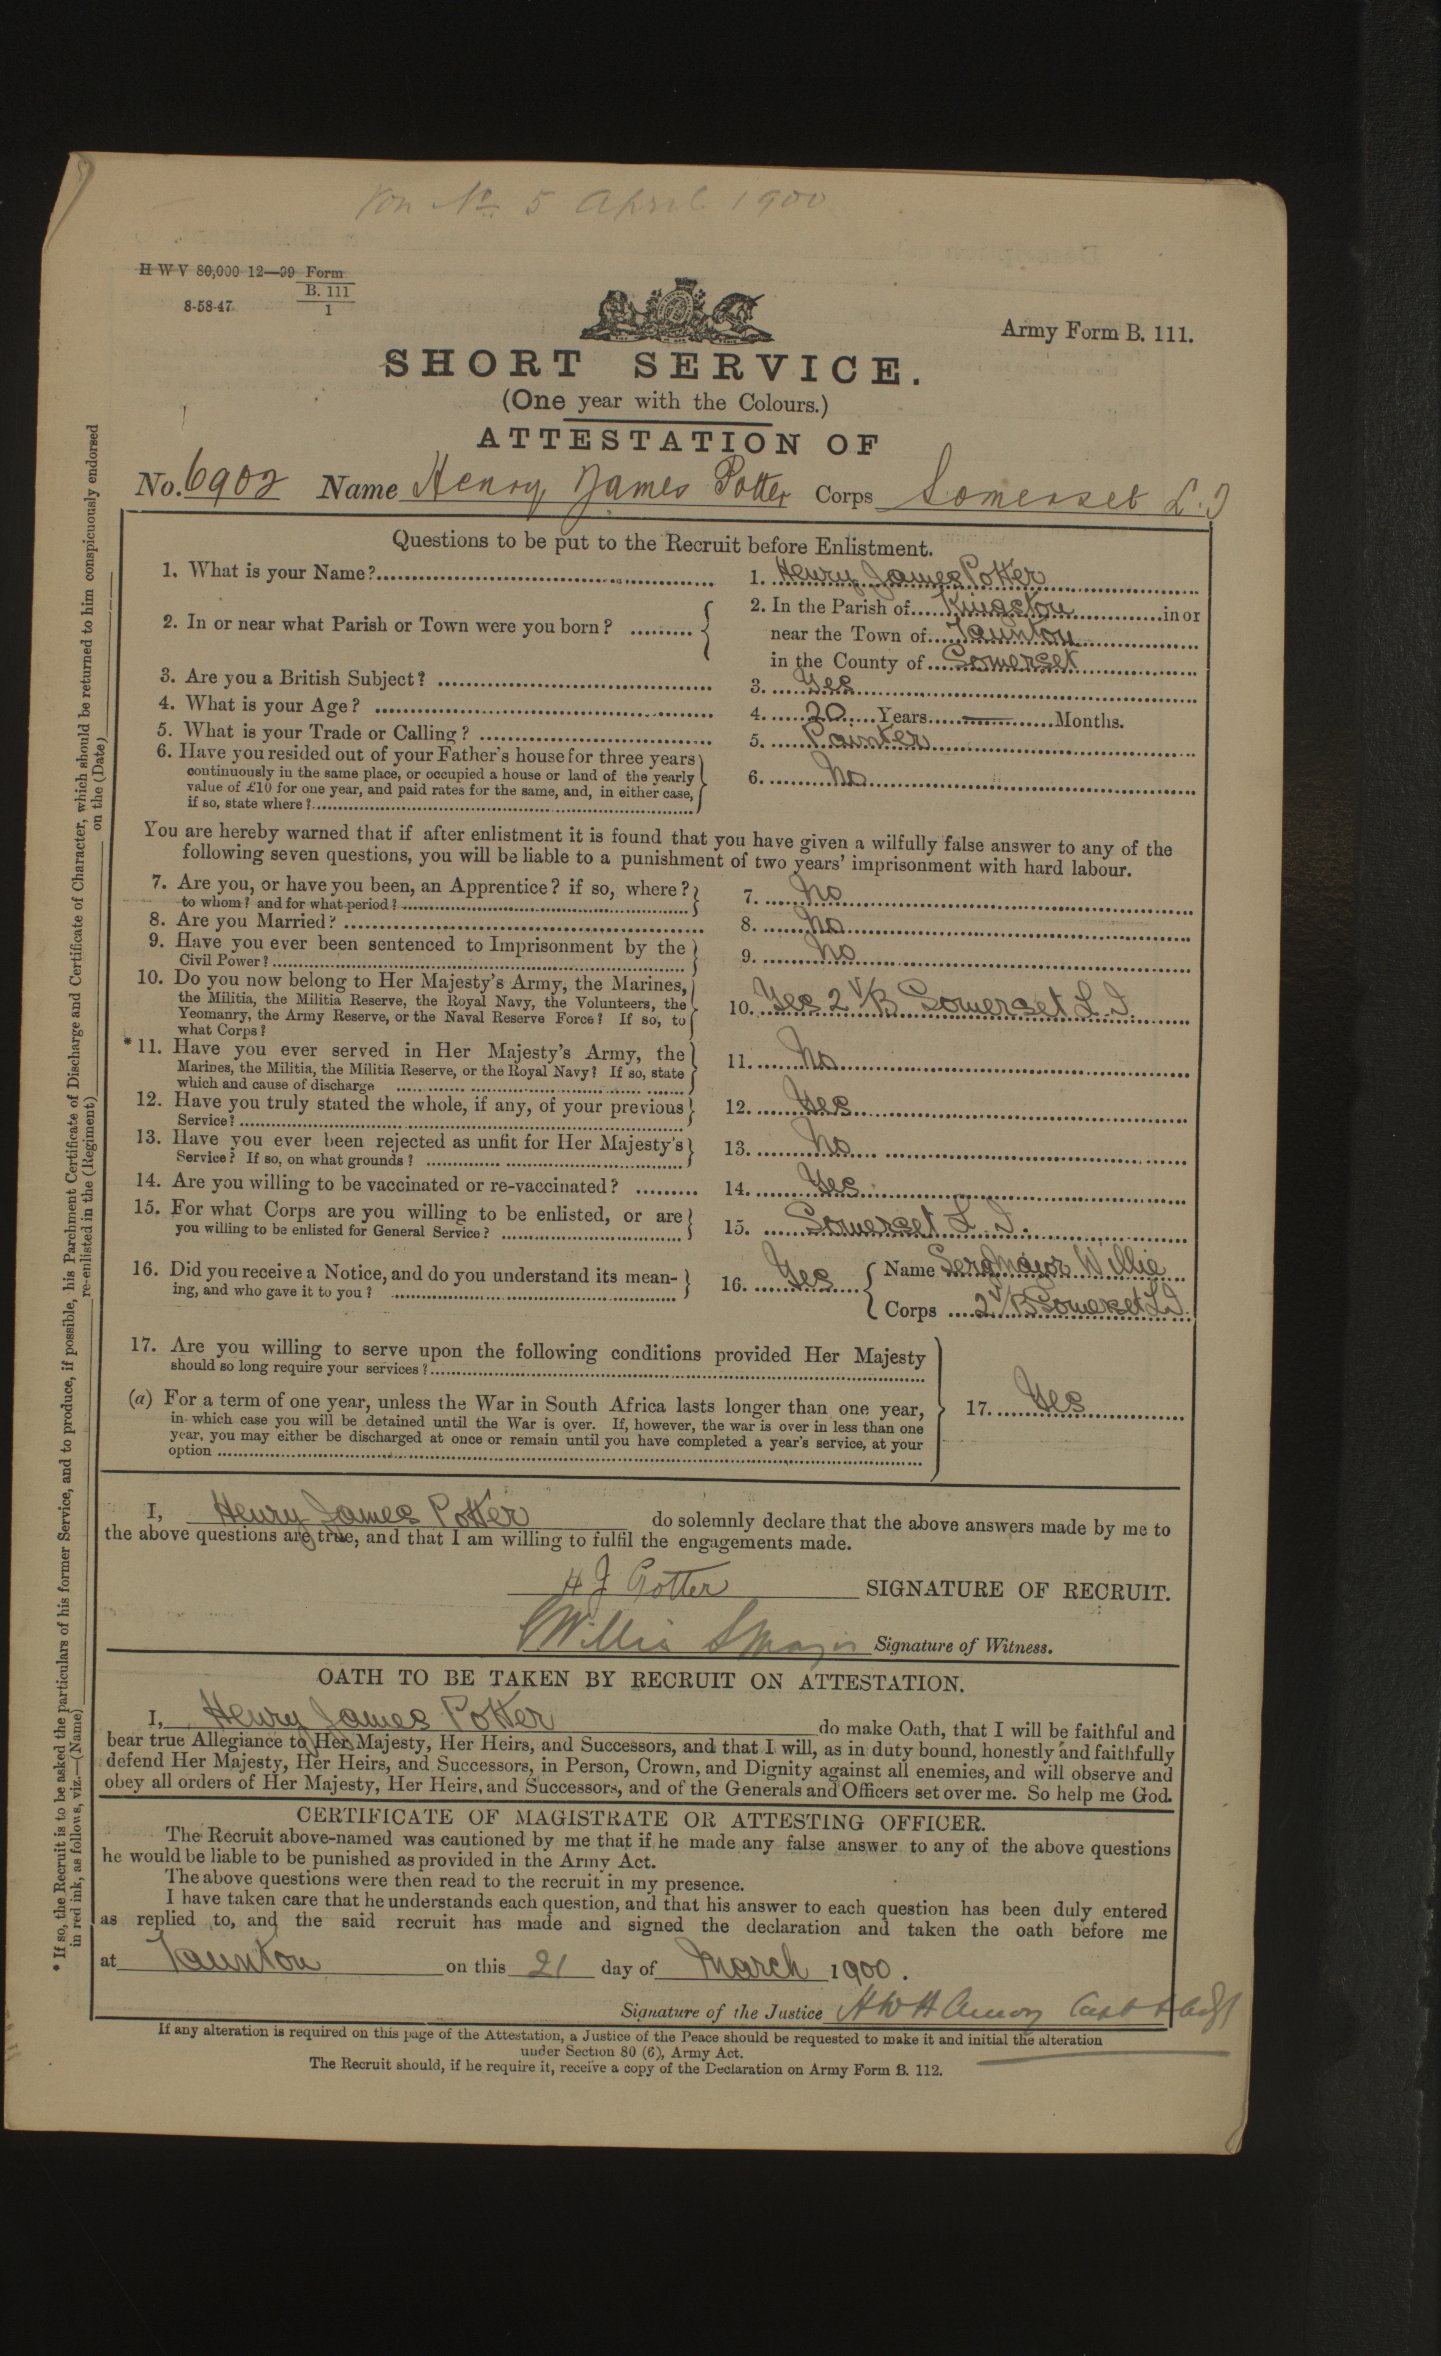 5 April 1900
H W V 80,000 12—99 Form
B. 111
8-58-47
1
Army Form B. 111.
SHORT SERVICE.
(One year with the Colours.)
ATTESTATION OF
No. 6902 Name Henry James Potter Corps Somerset L.I
Questions to be put to the Recruit before Enlistment.
1. What is your Name? 1. Henry James Potter
2. In or near what Parish or Town were you born? 2. In the Parish of Kingston in or
near the Town of Taunton
in the County of Somerset
3. Are you a British Subject? 3. Yes
4. What is your Age? 4. 20 Years — Months.
5. What is your Trade or Calling? 5. Painter
6. Have you resided out of your Father's house for three years
continuously in the same place, or occupied a house or land of the yearly
value of £10 for one year, and paid rates for the same, and, in either case,
if so, state where? 6. No
You are hereby warned that if after enlistment it is found that you have given a wilfully false answer to any of the
following seven questions, you will be liable to a punishment of two years' imprisonment with hard labour.
7. Are you, or have you been, an Apprentice? if so, where?
to whom? and for what period? 7. No
8. Are you Married? 8. No
9. Have you ever been sentenced to Imprisonment by the
Civil Power? 9. No
10. Do you now belong to Her Majesty's Army, the Marines,
the Militia, the Militia Reserve, the Royal Navy, the Volunteers, the
Yeomanry, the Army Reserve, or the Naval Reserve Force? If so, to
what Corps? 10. Yes 2 V/B Somerset L.I.
* 11. Have you ever served in Her Majesty's Army, the
Marines, the Militia, the Militia Reserve, or the Royal Navy? If so, state
which and cause of discharge 11. No
12. Have you truly stated the whole, if any, of your previous
Service? 12. Yes
13. Have you ever been rejected as unfit for Her Majesty's
Service? If so, on what grounds? 13. No
14. Are you willing to be vaccinated or re-vaccinated? 14. Yes
15. For what Corps are you willing to be enlisted, or are
you willing to be enlisted for General Service? 15. Somerset L. I.
16. Did you receive a Notice, and do you understand its mean-
ing, and who gave it to you? 16. Yes Name Serg Major Willie
Corps 2 V/B Somerset L I.
17. Are you willing to serve upon the following conditions provided Her Majesty
should so long require your services?
(a) For a term of one year, unless the War in South Africa lasts longer than one year,
in which case you will be detained until the War is over. If, however, the war is over in less than one
year, you may either be discharged at once or remain until you have completed a year's service, at your
option 17. Yes
I, Henry James Potter do solemnly declare that the above answers made by me to
the above questions are true, and that I am willing to fulfil the engagements made.
H J Potter SIGNATURE OF RECRUIT.
Willis S Major Signature of Witness.
OATH TO BE TAKEN BY RECRUIT ON ATTESTATION.
I, Henry James Potter do make Oath, that I will be faithful and
bear true Allegiance to Her Majesty, Her Heirs, and Successors, and that I will, as in duty bound, honestly and faithfully
defend Her Majesty, Her Heirs, and Successors, in Person, Crown, and Dignity against all enemies, and will observe and
obey all orders of Her Majesty, Her Heirs, and Successors, and of the Generals and Officers set over me. So help me God.
CERTIFICATE OF MAGISTRATE OR ATTESTING OFFICER.
The Recruit above-named was cautioned by me that if he made any false answer to any of the above questions
he would be liable to be punished as provided in the Army Act.
The above questions were then read to the recruit in my presence.
I have taken care that he understands each question, and that his answer to each question has been duly entered
as replied to, and the said recruit has made and signed the declaration and taken the oath before me
at Taunton on this 21 day of March 1900.
Signature of the Justice H W H Capt
If any alteration is required on this page of the Attestation, a Justice of the Peace should be requested to make it and initial the alteration
under Section 80 (6), Army Act.
The Recruit should, if he require it, receive a copy of the Declaration on Army Form B. 112.
* If so, the Recruit is to be asked the particulars of his former Service, and to produce, if possible, his Parchment Certificate of Discharge and Certificate of Character, which should be returned to him conspicuously endorsed
in red ink, as follows, viz.—(Name) re-enlisted in the (Regiment) on the (Date)